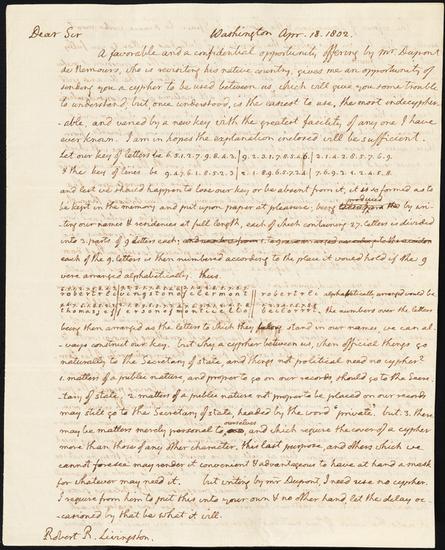 Dear Sir Washington Apr. 18. 1802.
A favorable and a confidential opportunity offering by Mr. Dupont
de Nemours, who is revisiting his native country, gives me an opportunity of
sending you a cypher to be used between us, which will give you some trouble
to understand, but, once understood, is the easiest to use, the most undecypher-
-able, and varied by a new key with the greatest facility, of any one I have
ever known. I am in hopes the explanation inclosed will be sufficient.
Let our key of letters be
& the key of lines be
and lest we should happen to lose our key or be absent from it, it is so formed as to
be kept in the memory and put upon paper at pleasure; being produced by wri
ting our names & residences at full length, each of which containing 27. letters is divided
into 2. parts of 9. letters each;
each of the 9. letters is then numbered according to the place it would hold if the 9
were arranged alphabetically. thus.
robertrli vingstono fclermont robertrli alphabetically arranged would be
thomasjef fersonofm onticello beilorrrt the numbers over the letters
being then arranged as the letters to which they belong stand in our names, we can al-
ways construct our key. but why a cypher between us, when official things go
naturally to the Secretary of state, and things not political need no cypher?
1. matters of a public nature, and proper to go on our records, should go to the Secre-
tary of state. 2. matters of a public nature not proper to be placed on our records
may still go to the Secretary of state, headed by the word 'private.' but 3. there
may be matters merely personal to ourselves and which require the cover of a cypher
more than those of any other character. this last purpose, and others which we
cannot foresee may render it convenient & advantageous to have at hand a mask
for whatever may need it. but writing by Mr. Dupont, I need use no cypher.
I require from him to put this into your own & no other hand, let the delay oc-
casioned by that be what it will.
Robert R. Livingston.